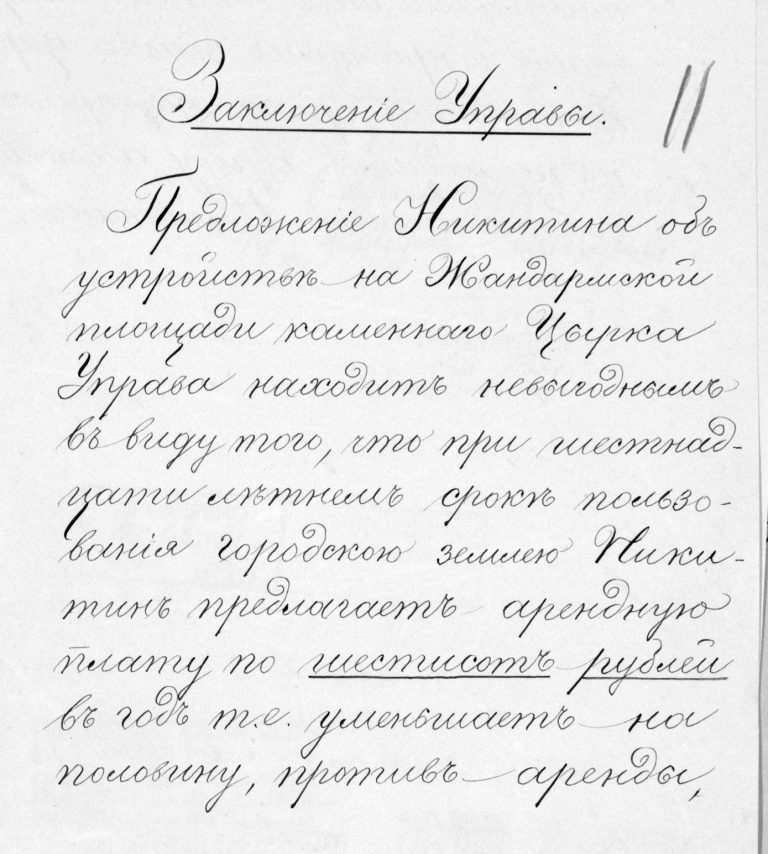 Заключенiе Управы.
11
Предложенiе Никитина объ
устройствѣ на Жандармской
площади каменнаго Цырка
Управа находитъ невыгоднымъ
въ виду того, что при шестнад-
цати лѣтнемъ срокѣ пользо-
ванiя городскою землею Ники-
тинъ предлагаетъ арендную
плату по шестисотъ рублей
въ годъ т.е. уменьшаетъ на
половину, противъ аренды,